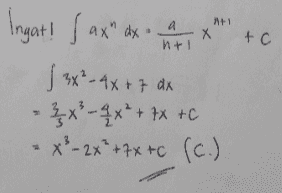 Ingat! ∫ ax^n dx = a/(n+1) x^(n+1) + C
∫ 3x² - 4x + 7 dx
= 3/3 x³ - 4/2 x² + 7x + C
= x³ - 2x² + 7x + C (C.)